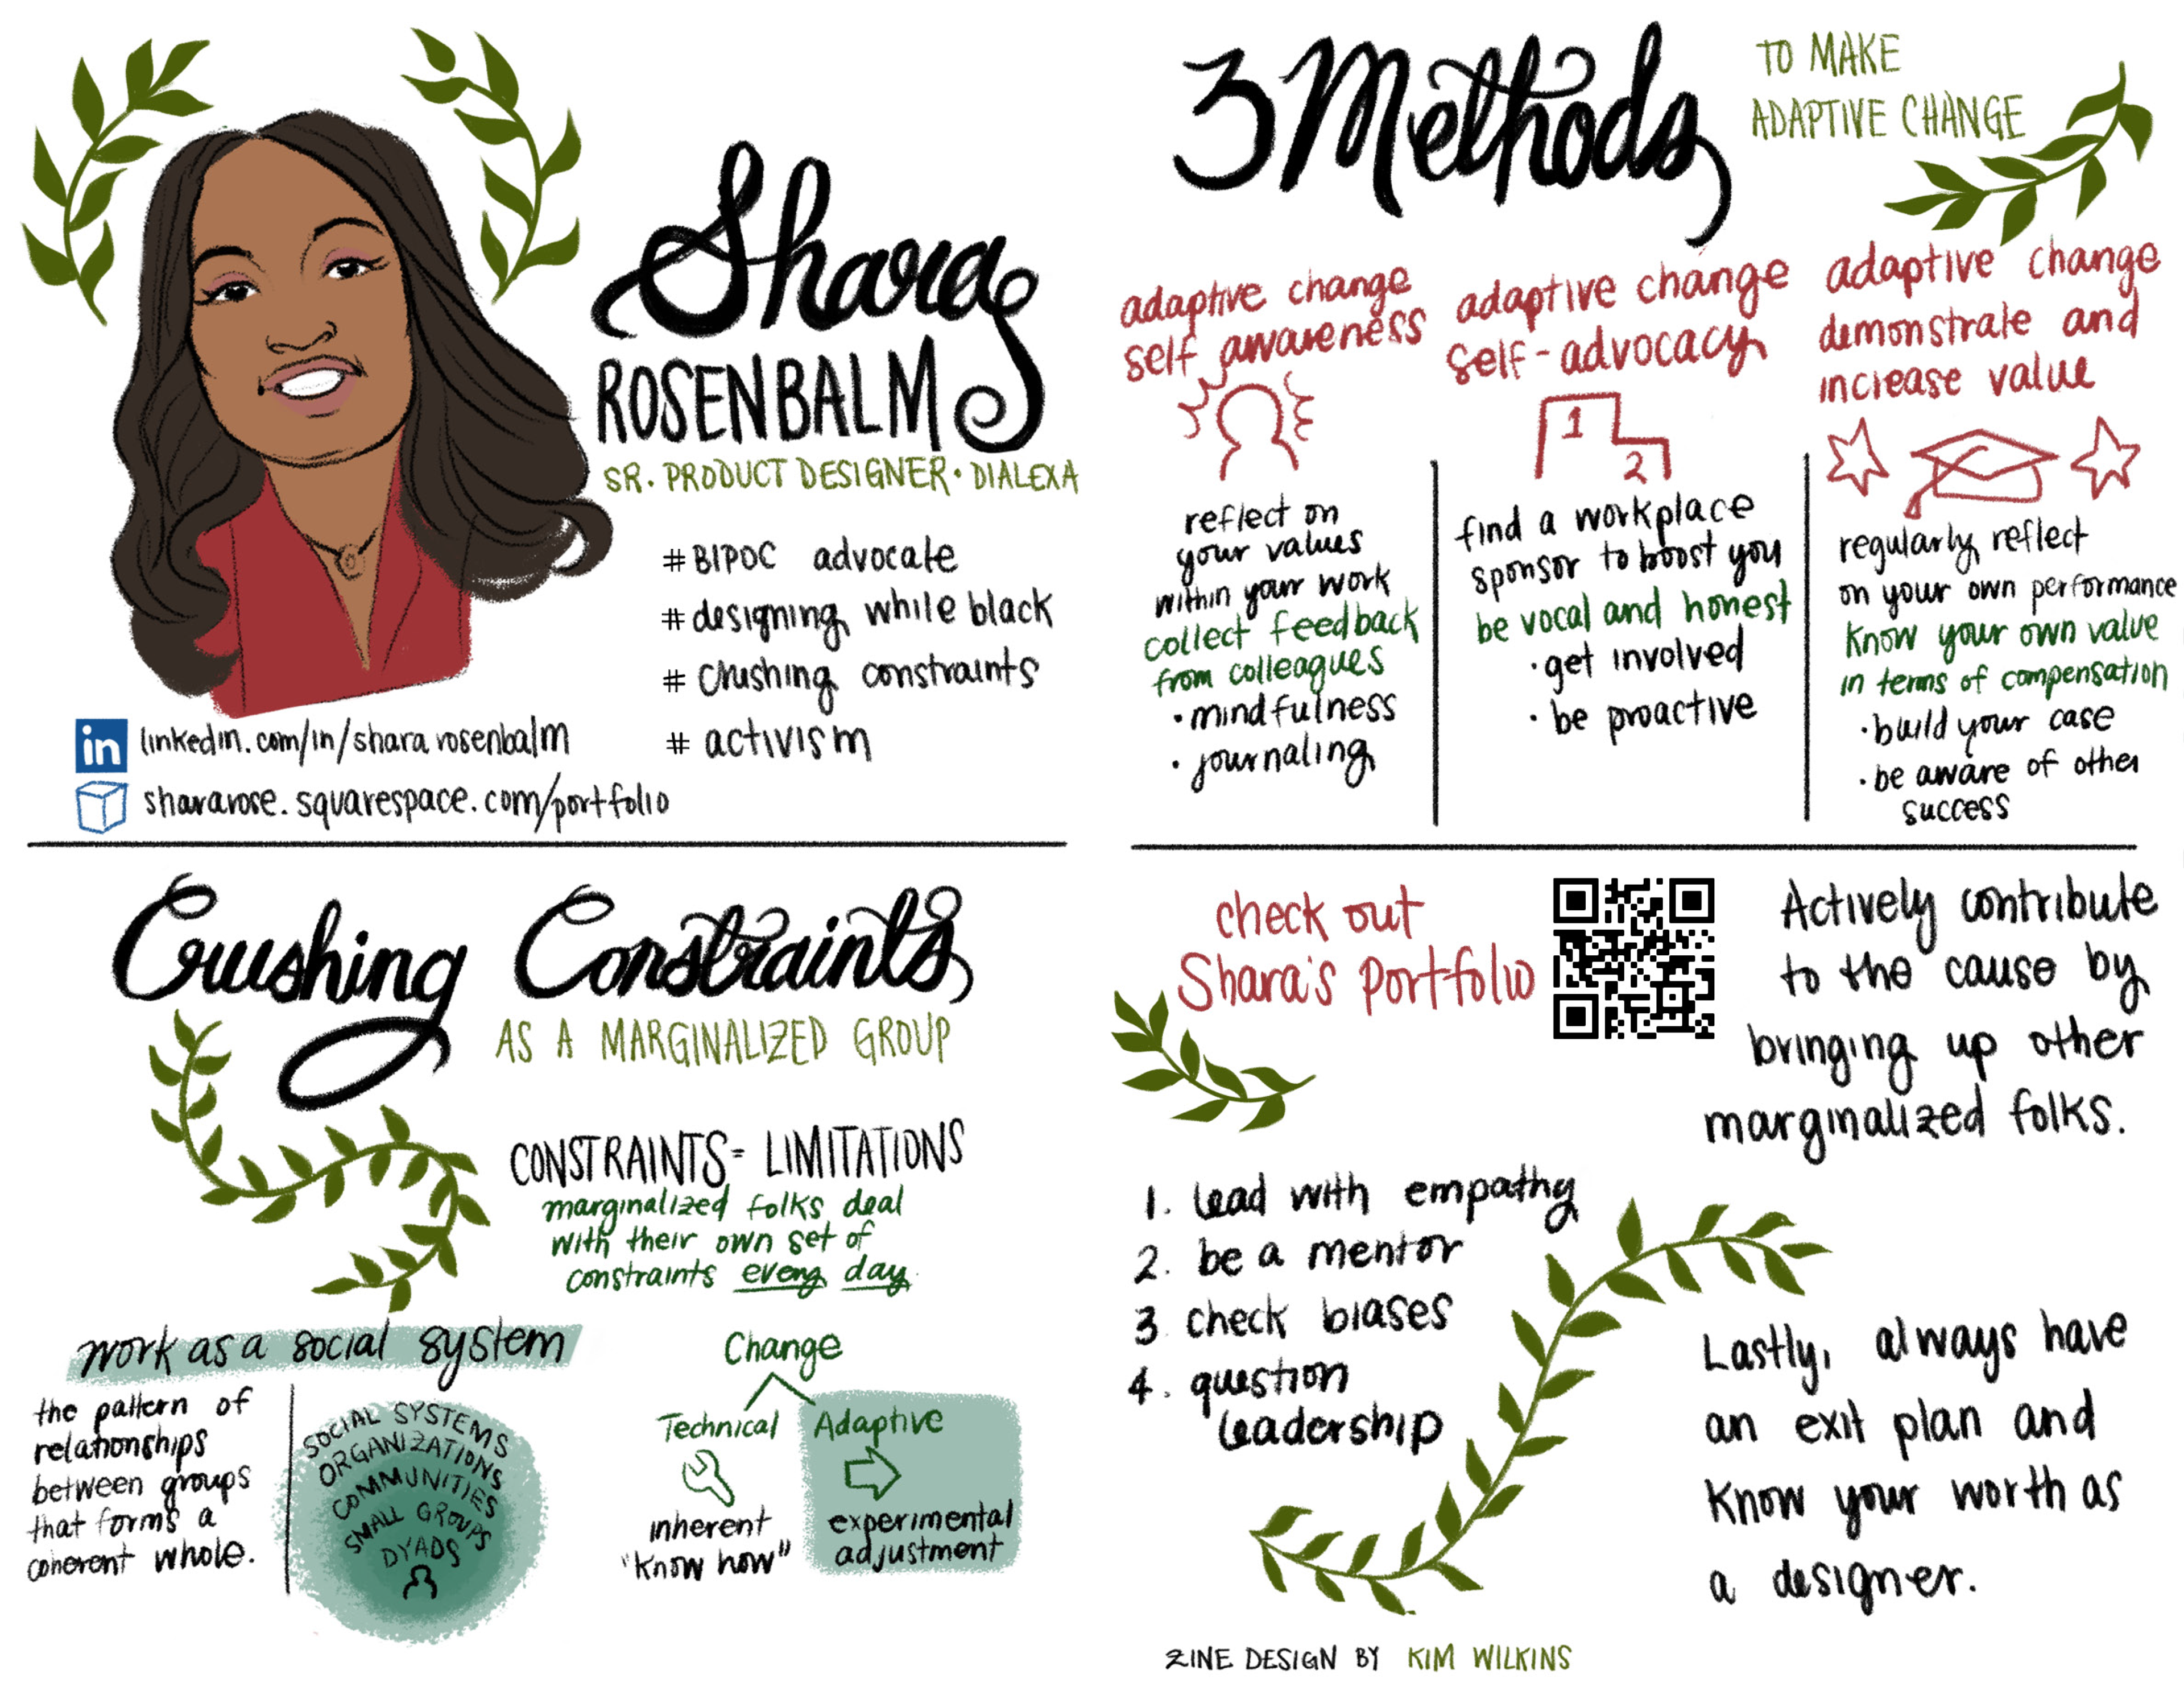 Shara
ROSENBALM
SR. PRODUCT DESIGNER • DIALEXA
# BIPOC advocate
# designing while black
# crushing constraints
# activism
in linkedin.com/in/shararosenbalm
shararose.squarespace.com/portfolio
Crushing Constraints
AS A MARGINALIZED GROUP
CONSTRAINTS = LIMITATIONS
marginalized folks deal
with their own set of
constraints every day
work as a social system
the pattern of
relationships
between groups
that forms a
coherent whole.
SOCIAL SYSTEMS
ORGANIZATIONS
COMMUNITIES
SMALL GROUPS
DYADS
Change
Technical
inherent
"know how"
Adaptive
experimental
adjustment
3 Methods
TO MAKE
ADAPTIVE CHANGE
adaptive change
self awareness
reflect on
your values
within your work
collect feedback
from colleagues
• mindfulness
• journaling
adaptive change
self-advocacy
1
2
find a workplace
sponsor to boost you
be vocal and honest
• get involved
• be proactive
adaptive change
demonstrate and
increase value
regularly reflect
on your own performance
know your own value
in terms of compensation
• build your case
• be aware of other
success
check out
Shara's portfolio
Actively contribute
to the cause by
bringing up other
marginalized folks.
1. lead with empathy
2. be a mentor
3. check biases
4. question
leadership
Lastly, always have
an exit plan and
know your worth as
a designer.
ZINE DESIGN BY KIM WILKINS